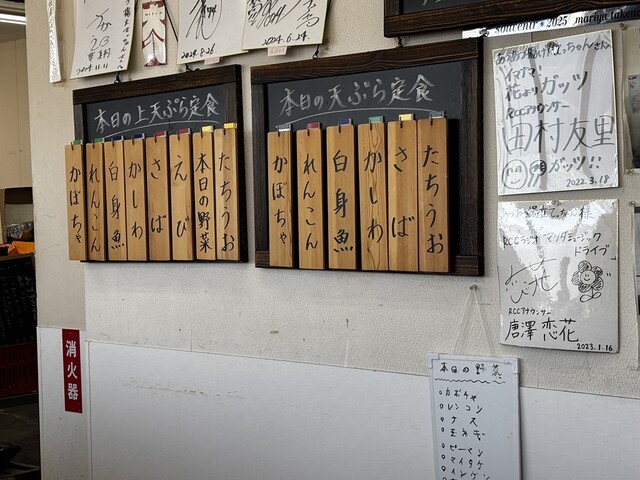 2024.8.26
2024.6.24.
souvenir • 2025
本日の上天ぷら定食
たちうお
本日の野菜
えび
さば
かしわ
白身魚
れんこん
かぼちゃ
本日の天ぷら定食
たちうお
さば
かしわ
白身魚
れんこん
かぼちゃ
イマナマ!
花よりガッツ
RCCアナウンサー
田村友里
ガッツ!!
2022.3.18
RCCラジオ マツダミュージック
ドライブ
RCCアナウンサー
唐澤恋花
2023.1.16
消火器
本日の野菜
カボチャ
レンコン
ナス
玉ネギ
ピーマン
マイタケ
インゲン